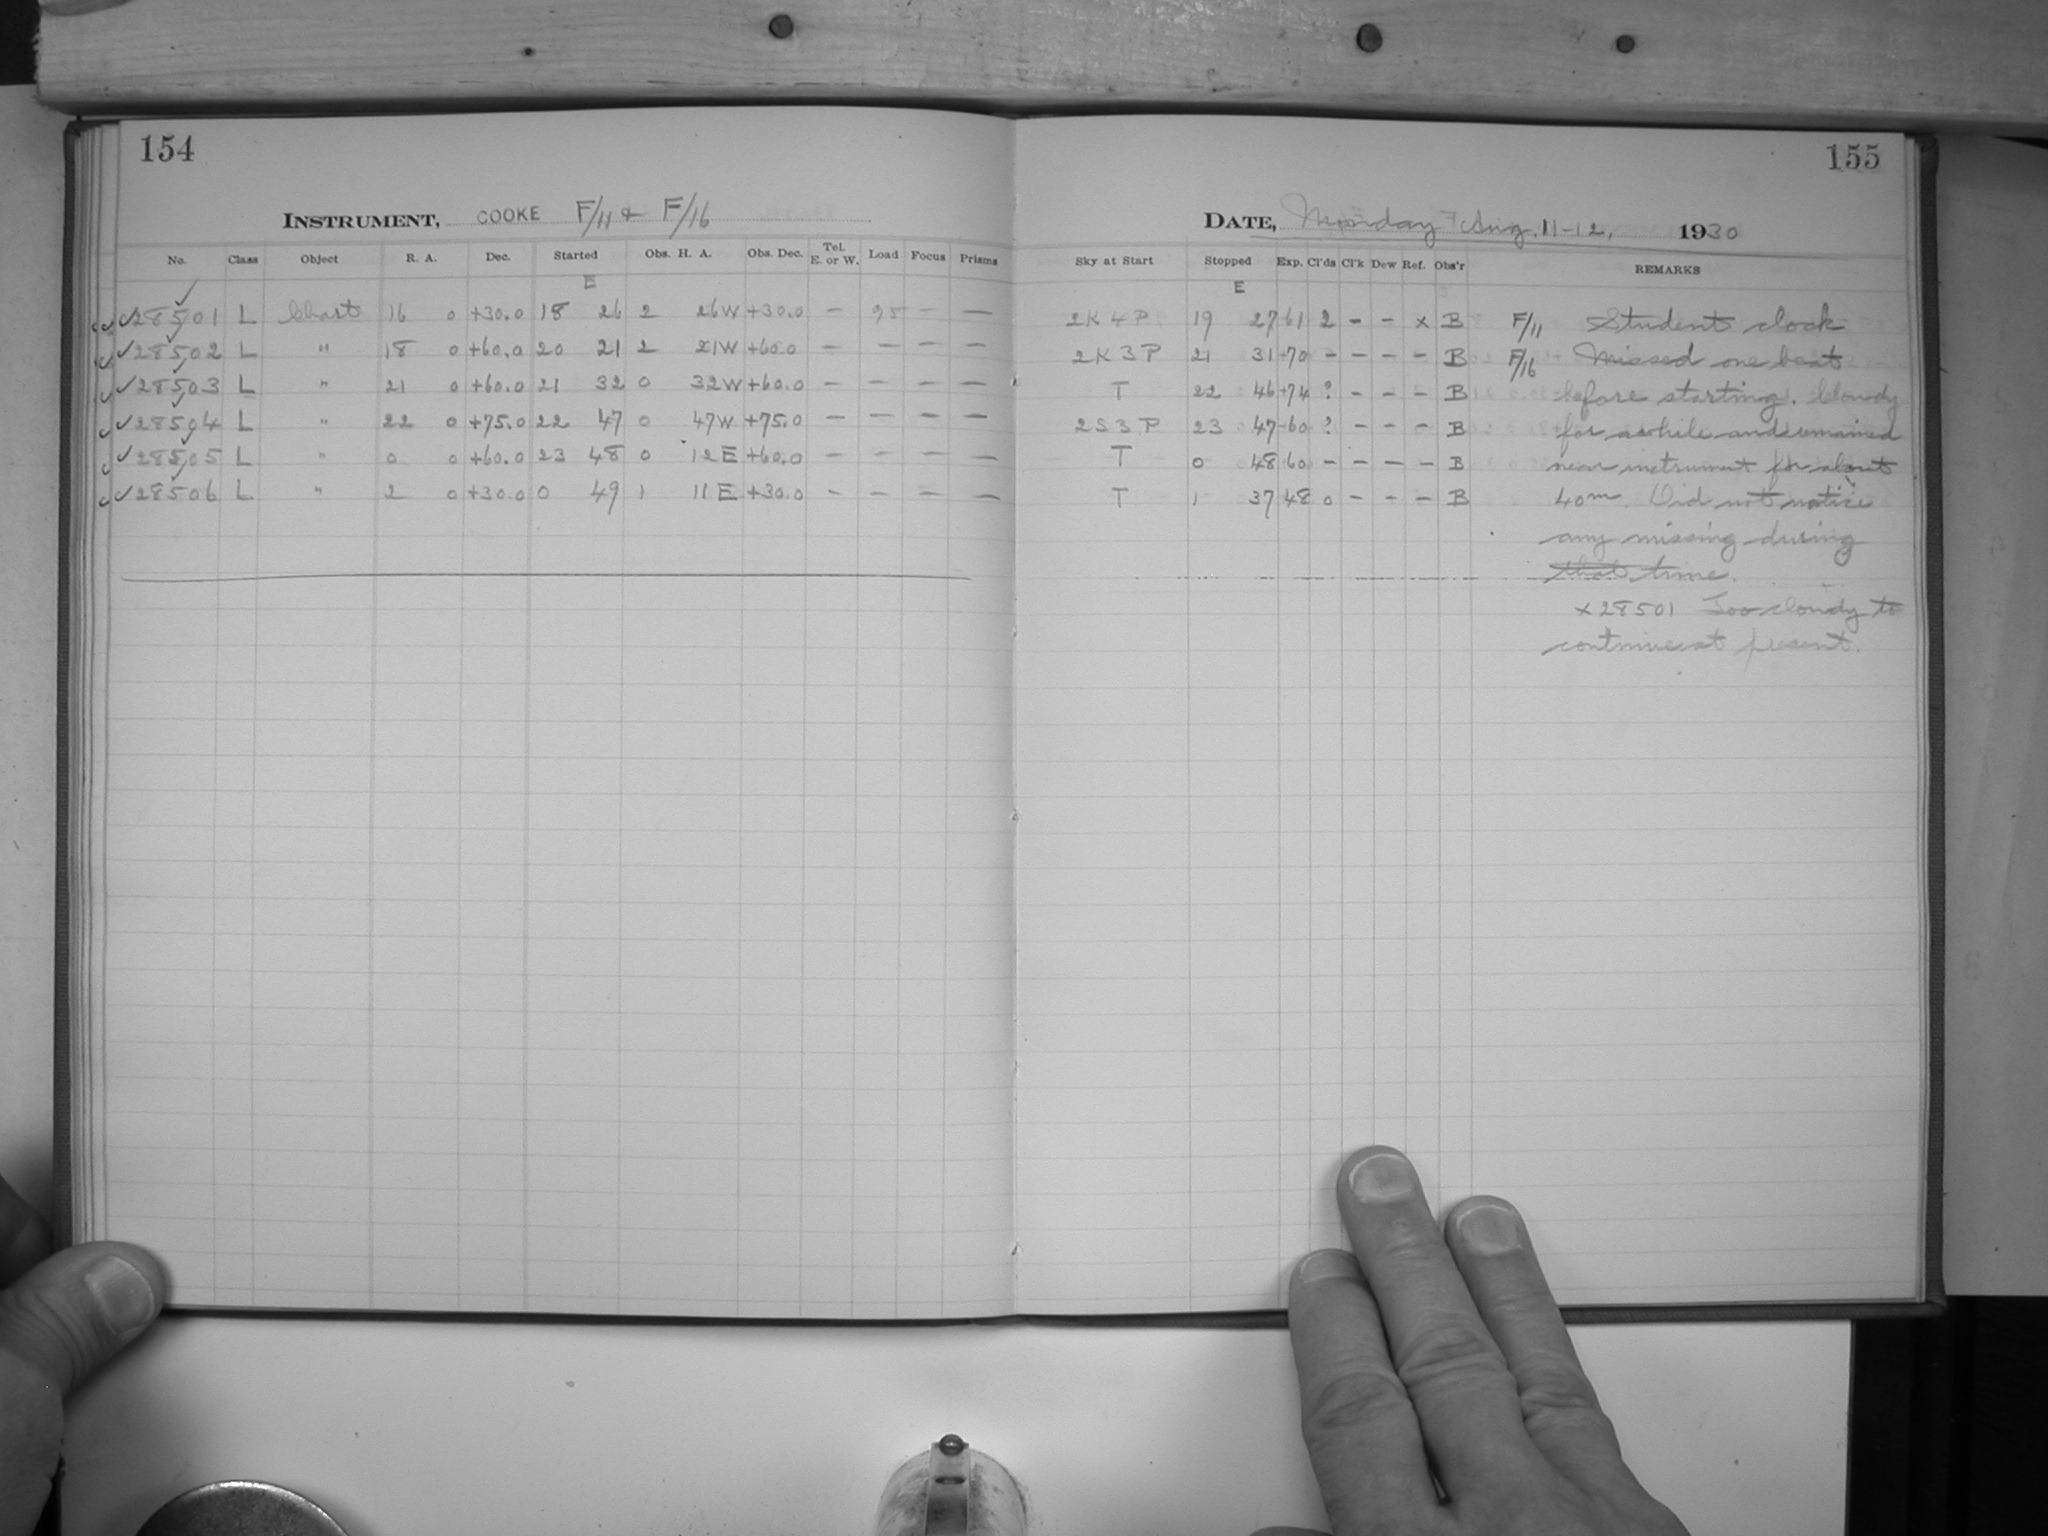 154
INSTRUMENT, COOKE F/11 & F/16
No. Class Object R. A. Dec. Started Obs. H. A. Obs. Dec. Tel. E. or W. Load Focus Prisms
E
28501 L Chart 16 0 +30.0 18 26 2 26W +30.0 – 95 – –
28502 L " 18 0 +60.0 20 21 2 21W +60.0 – – – –
28503 L " 21 0 +60.0 21 32 0 32W +60.0 – – – –
28504 L " 22 0 +75.0 22 47 0 47W +75.0 – – – –
28505 L " 0 0 +60.0 23 48 0 12E +60.0 – – – –
28506 L " 2 0 +30.0 0 49 1 11E +30.0 – – – –
155
DATE, Monday Aug. 11-12, 1930
Sky at Start Stopped Exp. Cl'ds Cl'k Dew Ref. Obs'r REMARKS
E
2K4P 19 27 61 2 – – x B F/11 Student clock
2K3P 21 31 70 – – – – B F/16 Missed one beat
T 22 46 74 ? – – – B before starting. Cloudy
2S3P 23 47 60 ? – – – B for awhile and remained
T 0 48 60 – – – – B near instrument for about
T 1 37 48 0 – – – B 40m. Did not notice
any missing during
that time.
x 28501 Too cloudy to
continue at present.